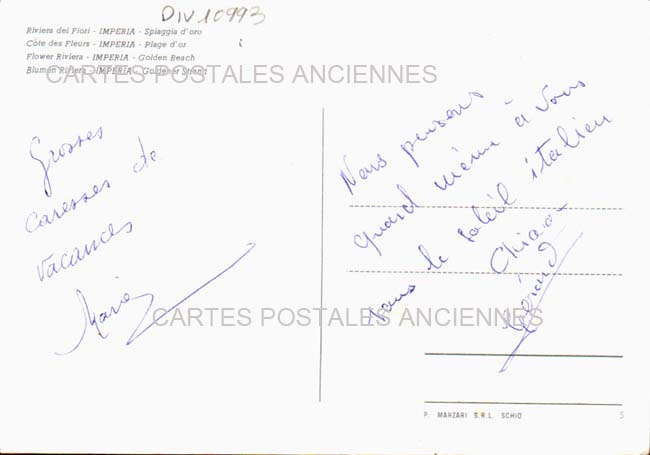 DIV 10993
Riviera dei Fiori - IMPERIA - Spiaggia d'oro
Côte des Fleurs - IMPERIA - Plage d'or
Flower Riviera - IMPERIA - Golden Beach
Blumen Riviera - IMPERIA - Goldener Strand
CARTES POSTALES ANCIENNES
Grosses
caresses de
vacances
Marie
Nous pensons
quand même à vous
dans le soleil italien
Chiao
Gérard
CARTES POSTALES ANCIENNES
P. MARZARI S.R.L. SCHIO
5